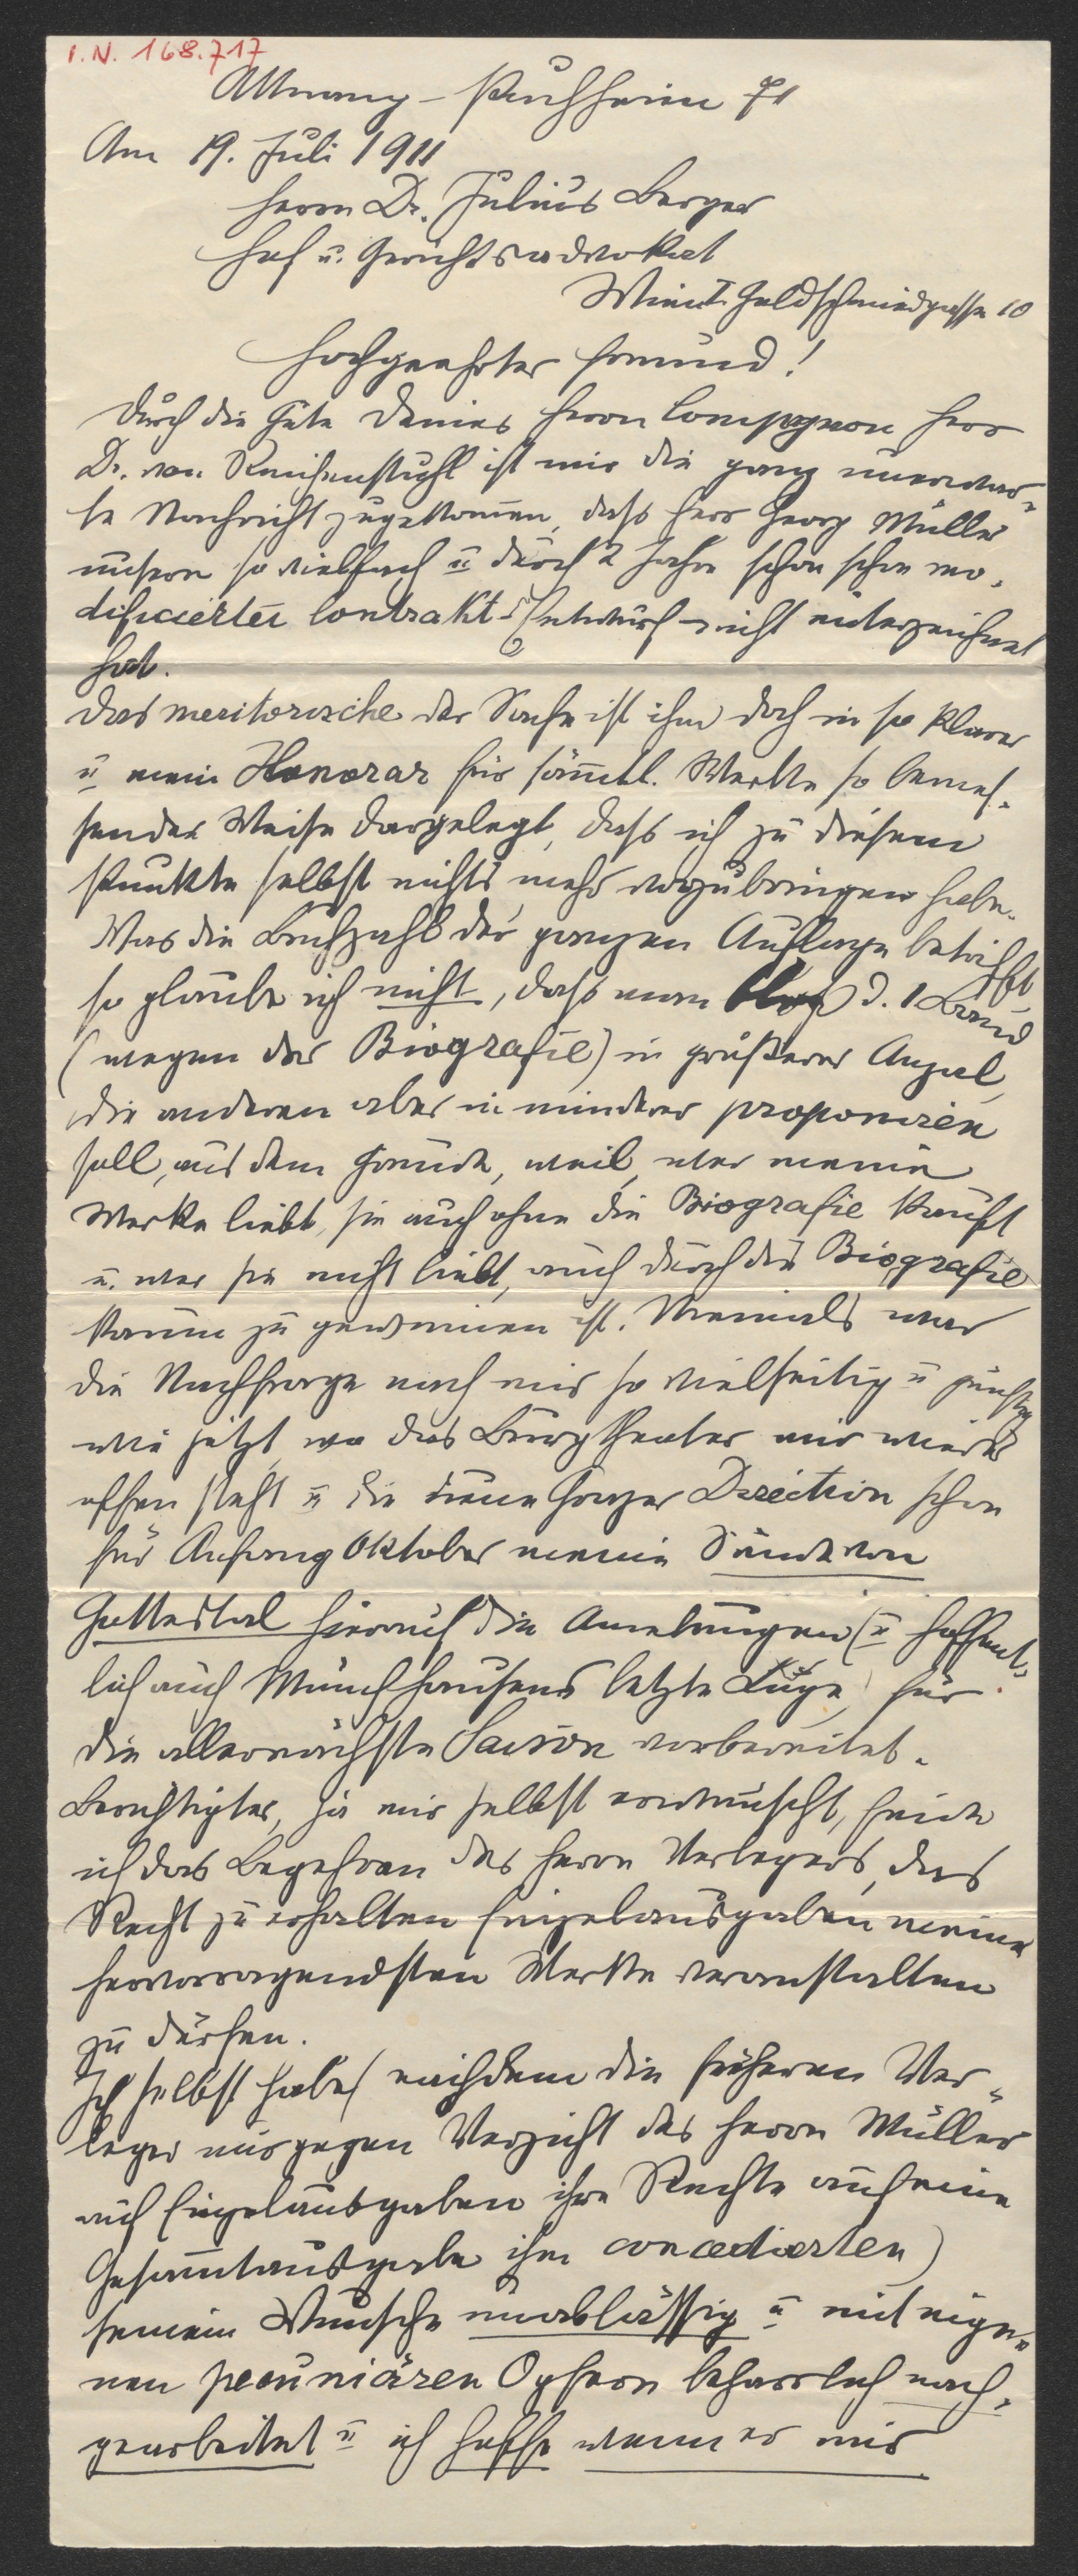 I.N. 168.717
Attnang-Puchheim 71
Am 19. Juli 1911
Herrn Dr. Julius Berger
Hof u. Gerichtsadvokat
Wien I. Goldschmiedgasse 10
Hochgeehrter Freund!
Durch die Güte Deines Herrn Compagnon Herr
Dr. von ist mir die ganz unerwar-
te Nachricht zugekommen, dass Herr Georg Müller
unsern so vielfach u durch 2 Jahre schon schon mo-
dificierten Contrakt-Entwurf nicht unterzeichnet
hat.
Das meritorische der Sache ist ihm doch in so klarer
u mein Honorar für sämtl. Werke so bemes-
sender Weise dargelegt, dass ich zu diesem
Punkte selbst nichts mehr vorzubringen habe.
Was die Buchzahl der ganzen Auflage betrifft
so glaube ich nicht, dass man blos d. 1 Band
(wegen der Biografie) in größerer Anzal,
die anderen aber in minderer proponiren
soll, aus dem Grunde, weil, wer meine
Werke liebt, sie auch ohne die Biografie kauft
u. wer sie nicht liebt, auch durch die Biografie
kaum zu gewinnen ist. Niemals war
die Nachfrage nach mir so vielseitig u günstig
wie jetzt, wo das Burgtheater mir wieder
offen steht u die neue Grazer Direction schon
für Anfang Oktober meine Sünde von
Gottestal hierauf die Amelungen (u hoffent-
lich auch Münchhausens letzte Lüge) für
die allernächste Saison vorbereitet.
Berechtigter, ja mir selbst erwünscht, finde
ich das Begehren des Herrn Verlegers, das
Recht zu erhalten Einzelausgaben meiner
hervorragendsten Werke veranstalten
zu dürfen.
Ich selbst habe (nachdem die früheren Ver-
leger nur gegen Verzicht des Herrn Müller
auf Einzelausgaben ihre Rechte auf eine
Gesamtausgabe ihm concedierten)
seinem Wunsche unablässig u mit eige-
nen pecuniären Opfern beharrlich nach-
gearbeitet u ich hoffe wenn er mir